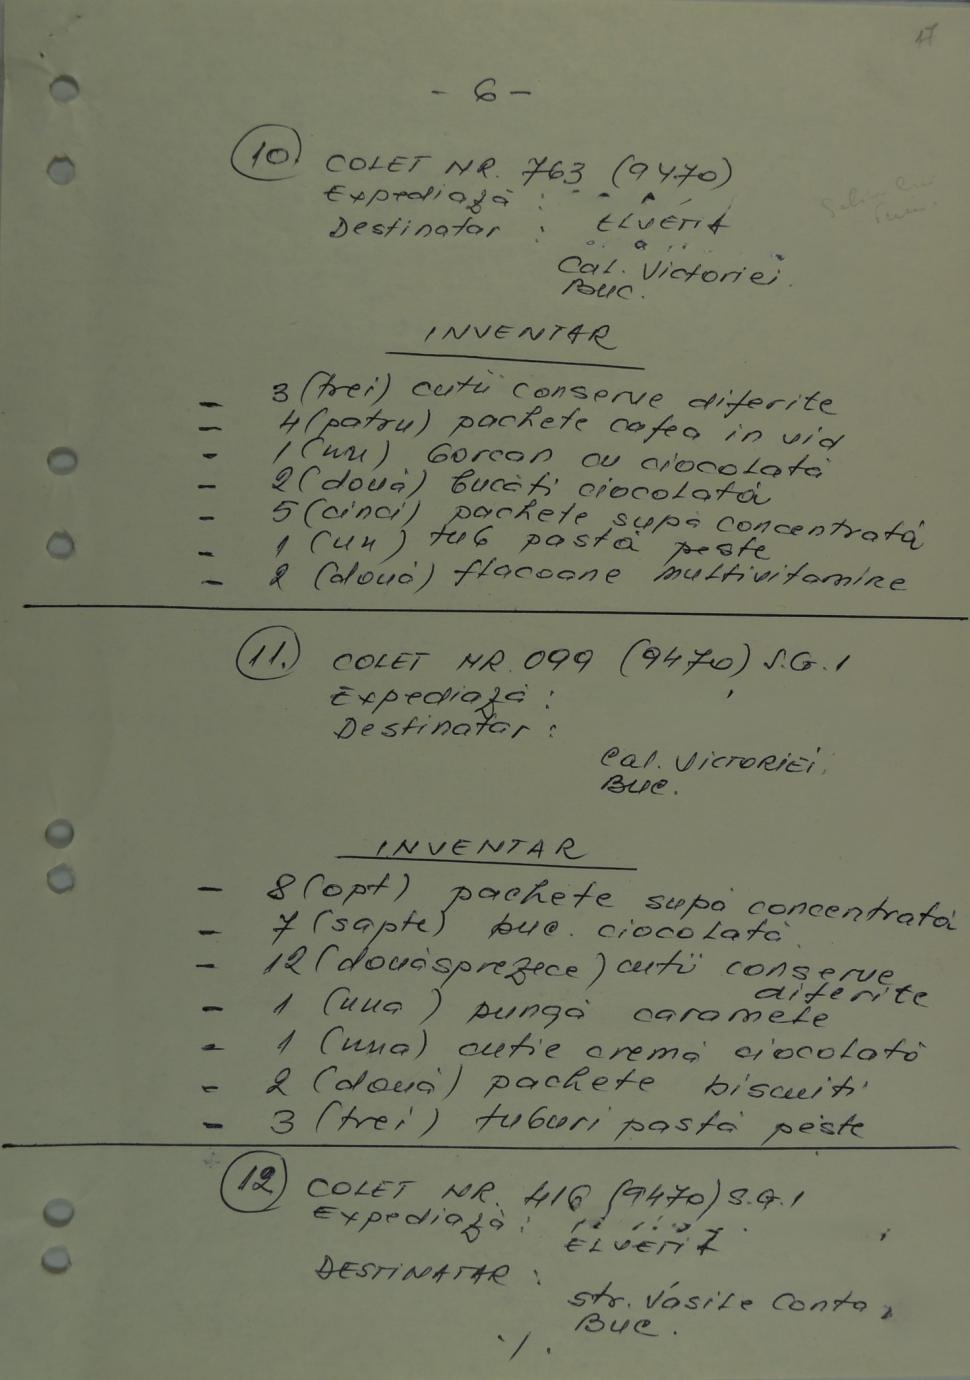 47
- 6 -
10. COLET NR. 763 (9470)
Expediază :
Destinatar : ELVEȚIA
Cal. Victoriei.
BUC.
INVENTAR
- 3 (trei) cutii conserve diferite
- 4 (patru) pachete cafea in vid
- 1 (un) borcan cu ciocolată
- 2 (două) bucăți ciocolată
- 5 (cinci) pachete supă concentrată
- 1 (un) tub pastă peste
- 2 (două) flacoane multivitamine
11. COLET NR. 099 (9470) S.G. 1
Expediază :
Destinatar :
Cal. VICTORIEI.
BUC.
INVENTAR
- 8 (opt) pachete supă concentrată
- 7 (sapte) buc. ciocolată
- 12 (douăsprezece) cutii conserve
diferite
- 1 (una) pungă caramele
- 1 (una) cutie cremă ciocolată
- 2 (două) pachete biscuiti
- 3 (trei) tuburi pastă peste
12 COLET NR. 416 (9470) S.G. 1
Expediază :
ELVEȚIA
DESTINATAR :
str. Vasile Conta,
BUC.
./.